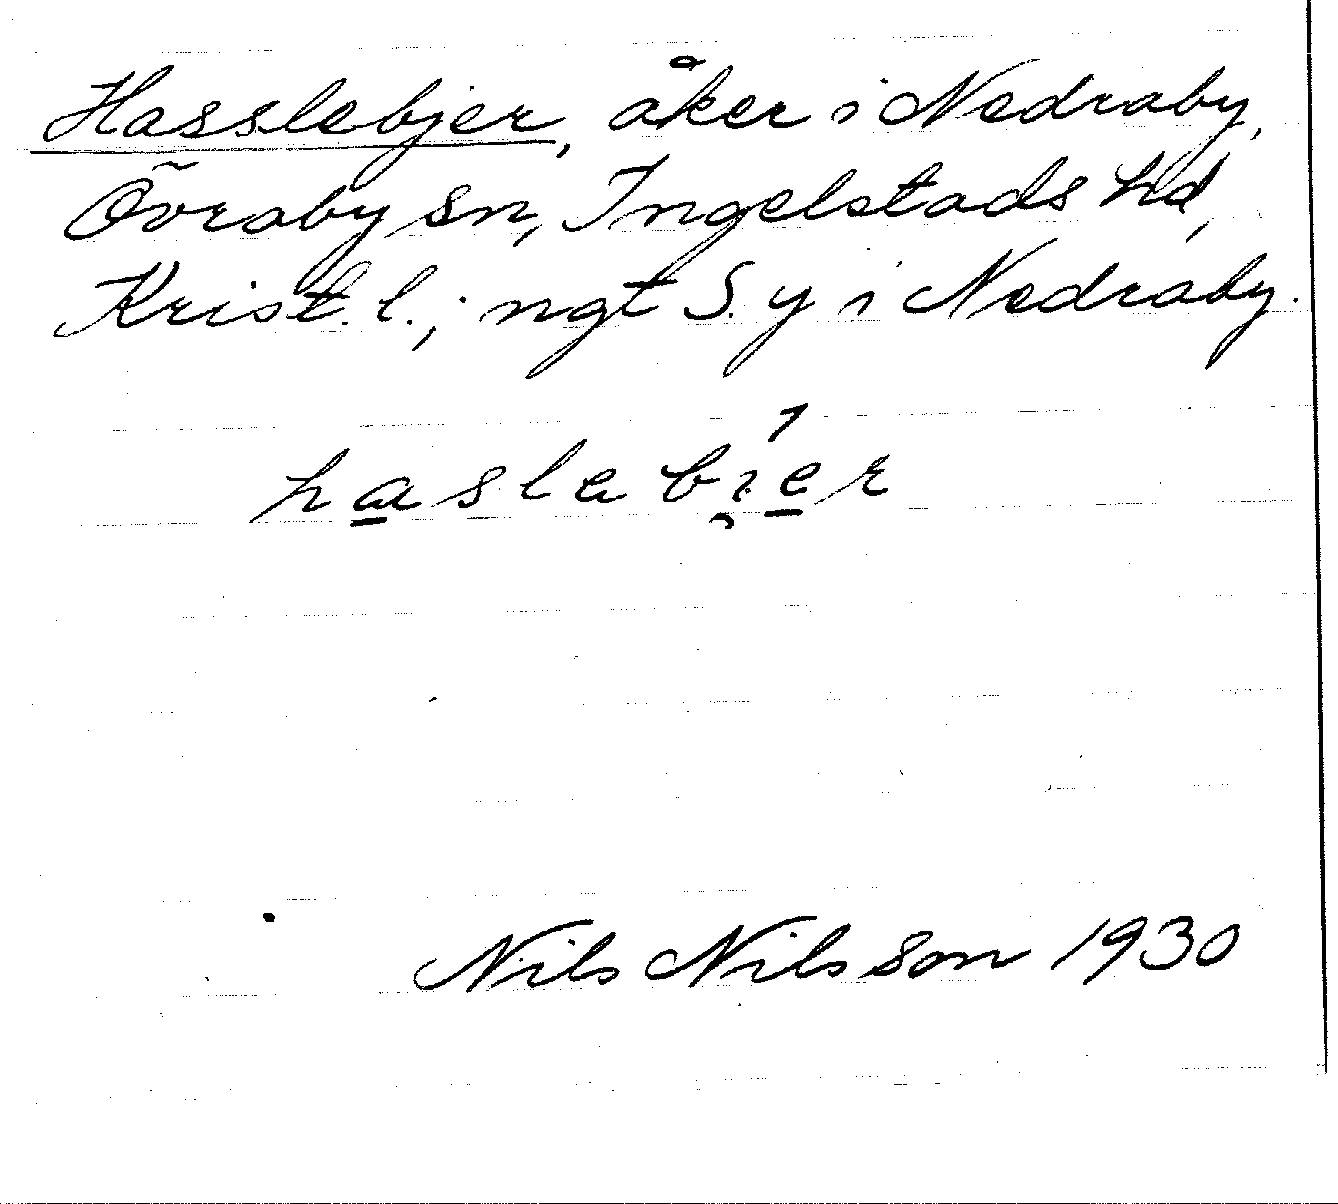 Hasslebjer, åker i Nedraby,
Övraby sn, Ingelstads hd,
Krist. l.; ngt S. y i Nedraby.
haslebi̯er
Nils Nilsson 1930